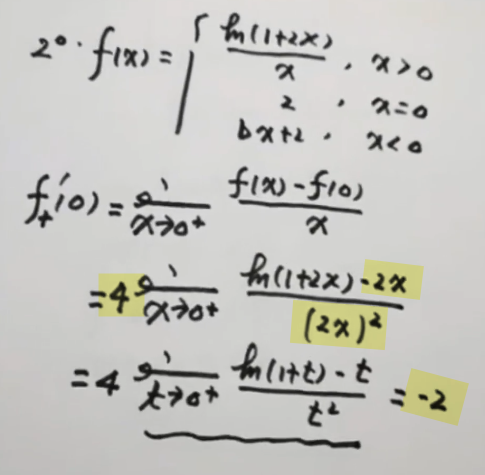 2°. f(x) = { ln(1+2x)/x , x>0
2 , x=0
bx+2 , x<0
f₊'(0) = lim x→0⁺ (f(x)-f(0))/x
= 4 lim x→0⁺ (ln(1+2x)-2x)/(2x)²
= 4 lim t→0⁺ (ln(1+t)-t)/t² = -2